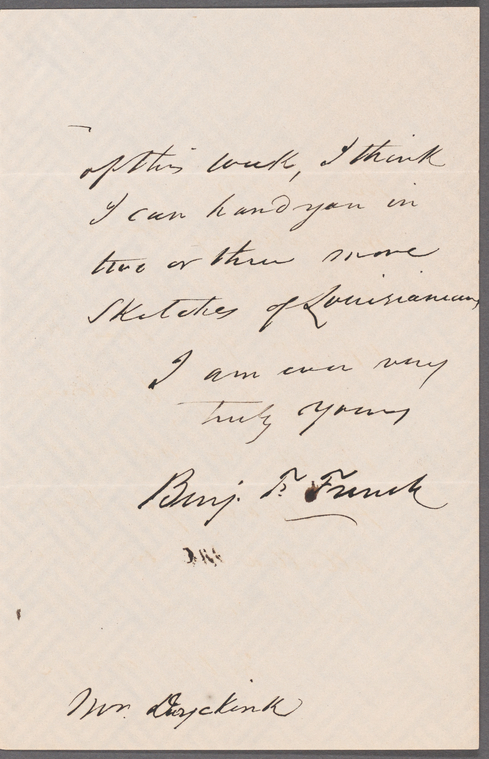 of this week, I think
I can hand you in
two or three more
Sketches of Louisianians
I am ever very
truly yours
Benj. F. French
Mr. Duyckink